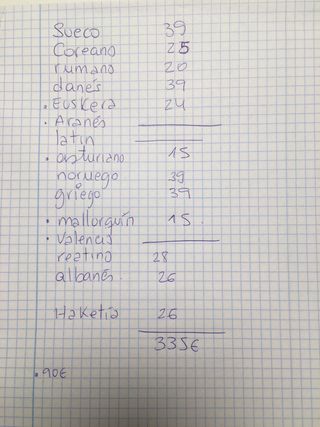 Sueco 39
Coreano 25
rumano 20
danés 39
. Euskera 24
. Aranés
latin
. asturiano 15
noruego 39
griego 39
. mallorquín 15.
. Valencia
reatino 28
albanés. 26
Haketia 26
335€
. 90€